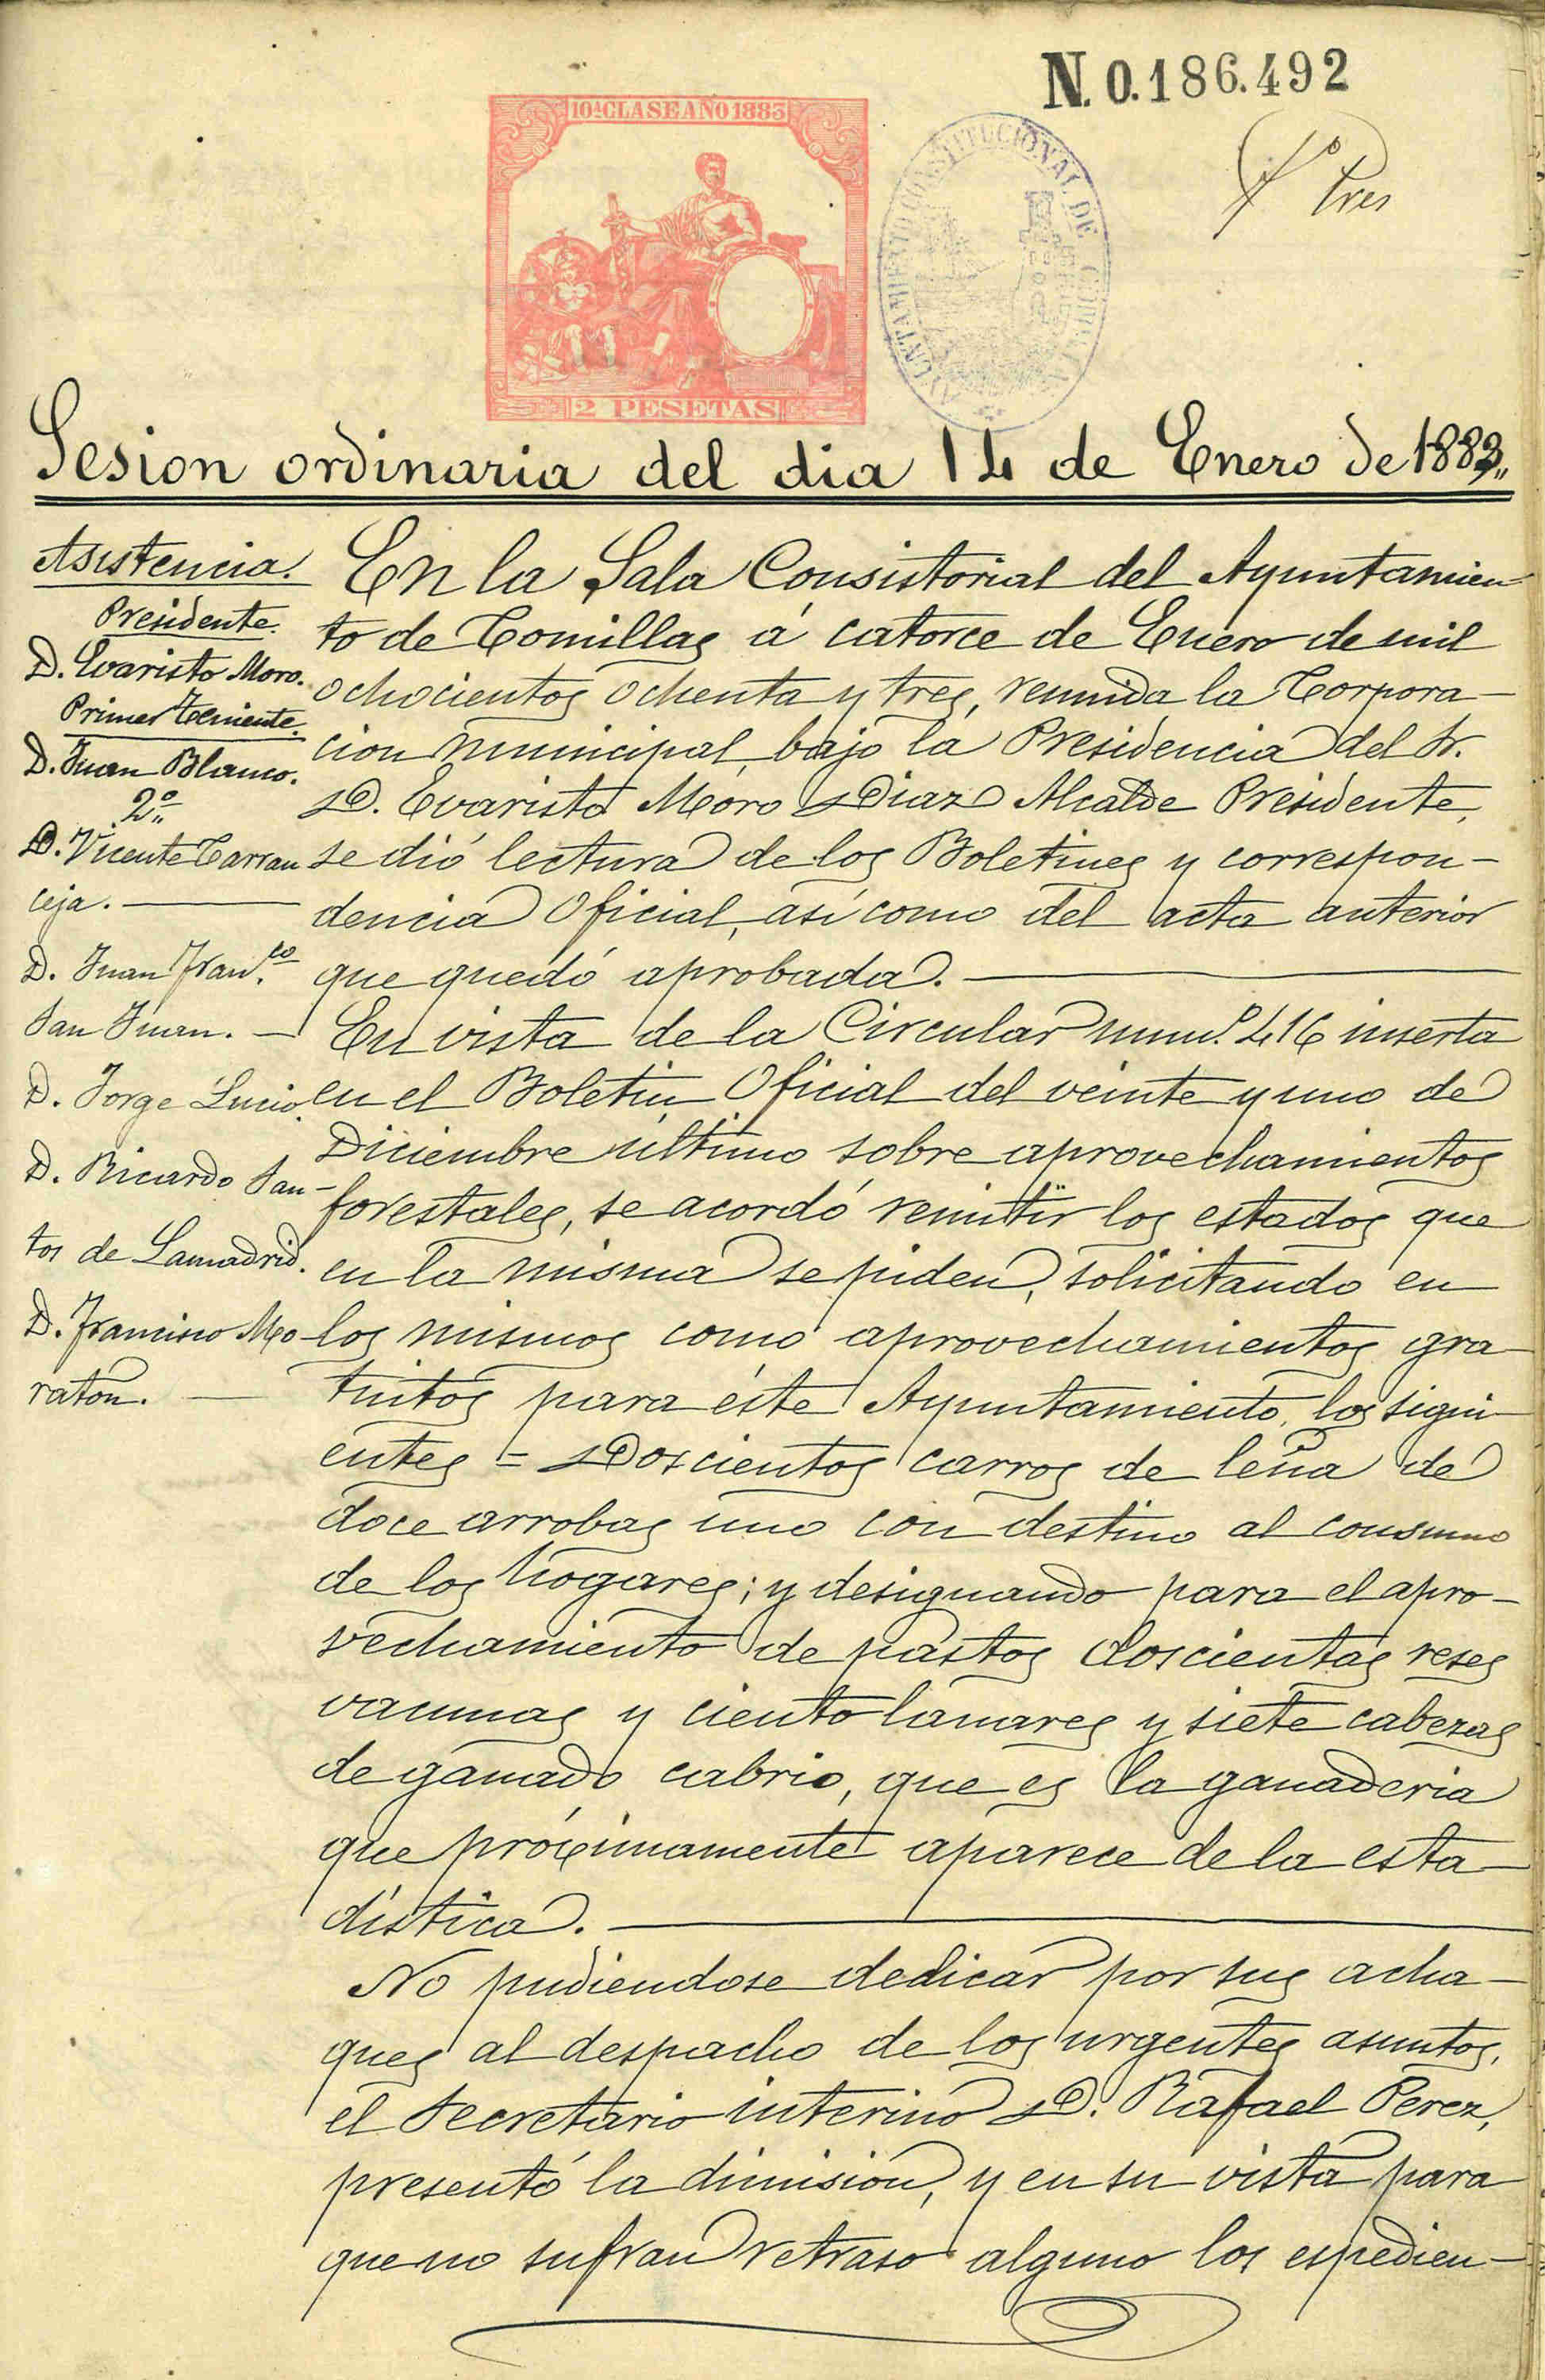 N. 0.186.492
10ª CLASE AÑO 1883
AYUNTAMIENTO CONSTITUCIONAL DE
fº tres
2 PESETAS
Sesion ordinaria del dia 14 de Enero de 1883,,
Asistencia.
Presidente.
D. Evaristo Moro.
Primer Teniente.
D. Juan Blanco.
2º
D. Vicente Carran
ceja.
D. Juan Fran.co
San Juan.
D. Jorge Lucio.
D. Ricardo San-
tos de Lamadrid.
D. Francisco Mo-
ratón.
En la Sala Consistorial del Ayuntamien-
to de Comillas á catorce de Enero de mil
ochocientos ochenta y tres, reunida la Corpora-
cion municipal, bajo la Presidencia del Sr.
D. Evaristo Moro Diaz Alcalde Presidente,
se dió lectura de los Boletines y correspon-
dencia Oficial, así como del acta anterior
que quedó aprobada.
En vista de la Circular num.º 416 inserta
en el Boletin Oficial del veinte y uno de
Diciembre último sobre aprovechamientos
forestales, se acordó remitir los estados que
en la misma se piden, solicitando en
los mismos como aprovechamientos gra-
tuitos para éste Ayuntamiento, los sigui-
entes = Doscientos carros de leña de
doce arrobas uno con destino al consumo
de los hogares; y designando para el apro-
vechamiento de pastos doscientas reses
vacunas y ciento lanares y siete cabezas
de ganado cabrio, que es la ganaderia
que próximamente aparece de la esta-
distica.
No pudiendose dedicar por sus acha-
ques al despacho de los urgentes asuntos,
el Secretario interino D. Rafael Perez,
presentó la dimisión, y en su vista para
que no sufran retraso alguno los espedien-